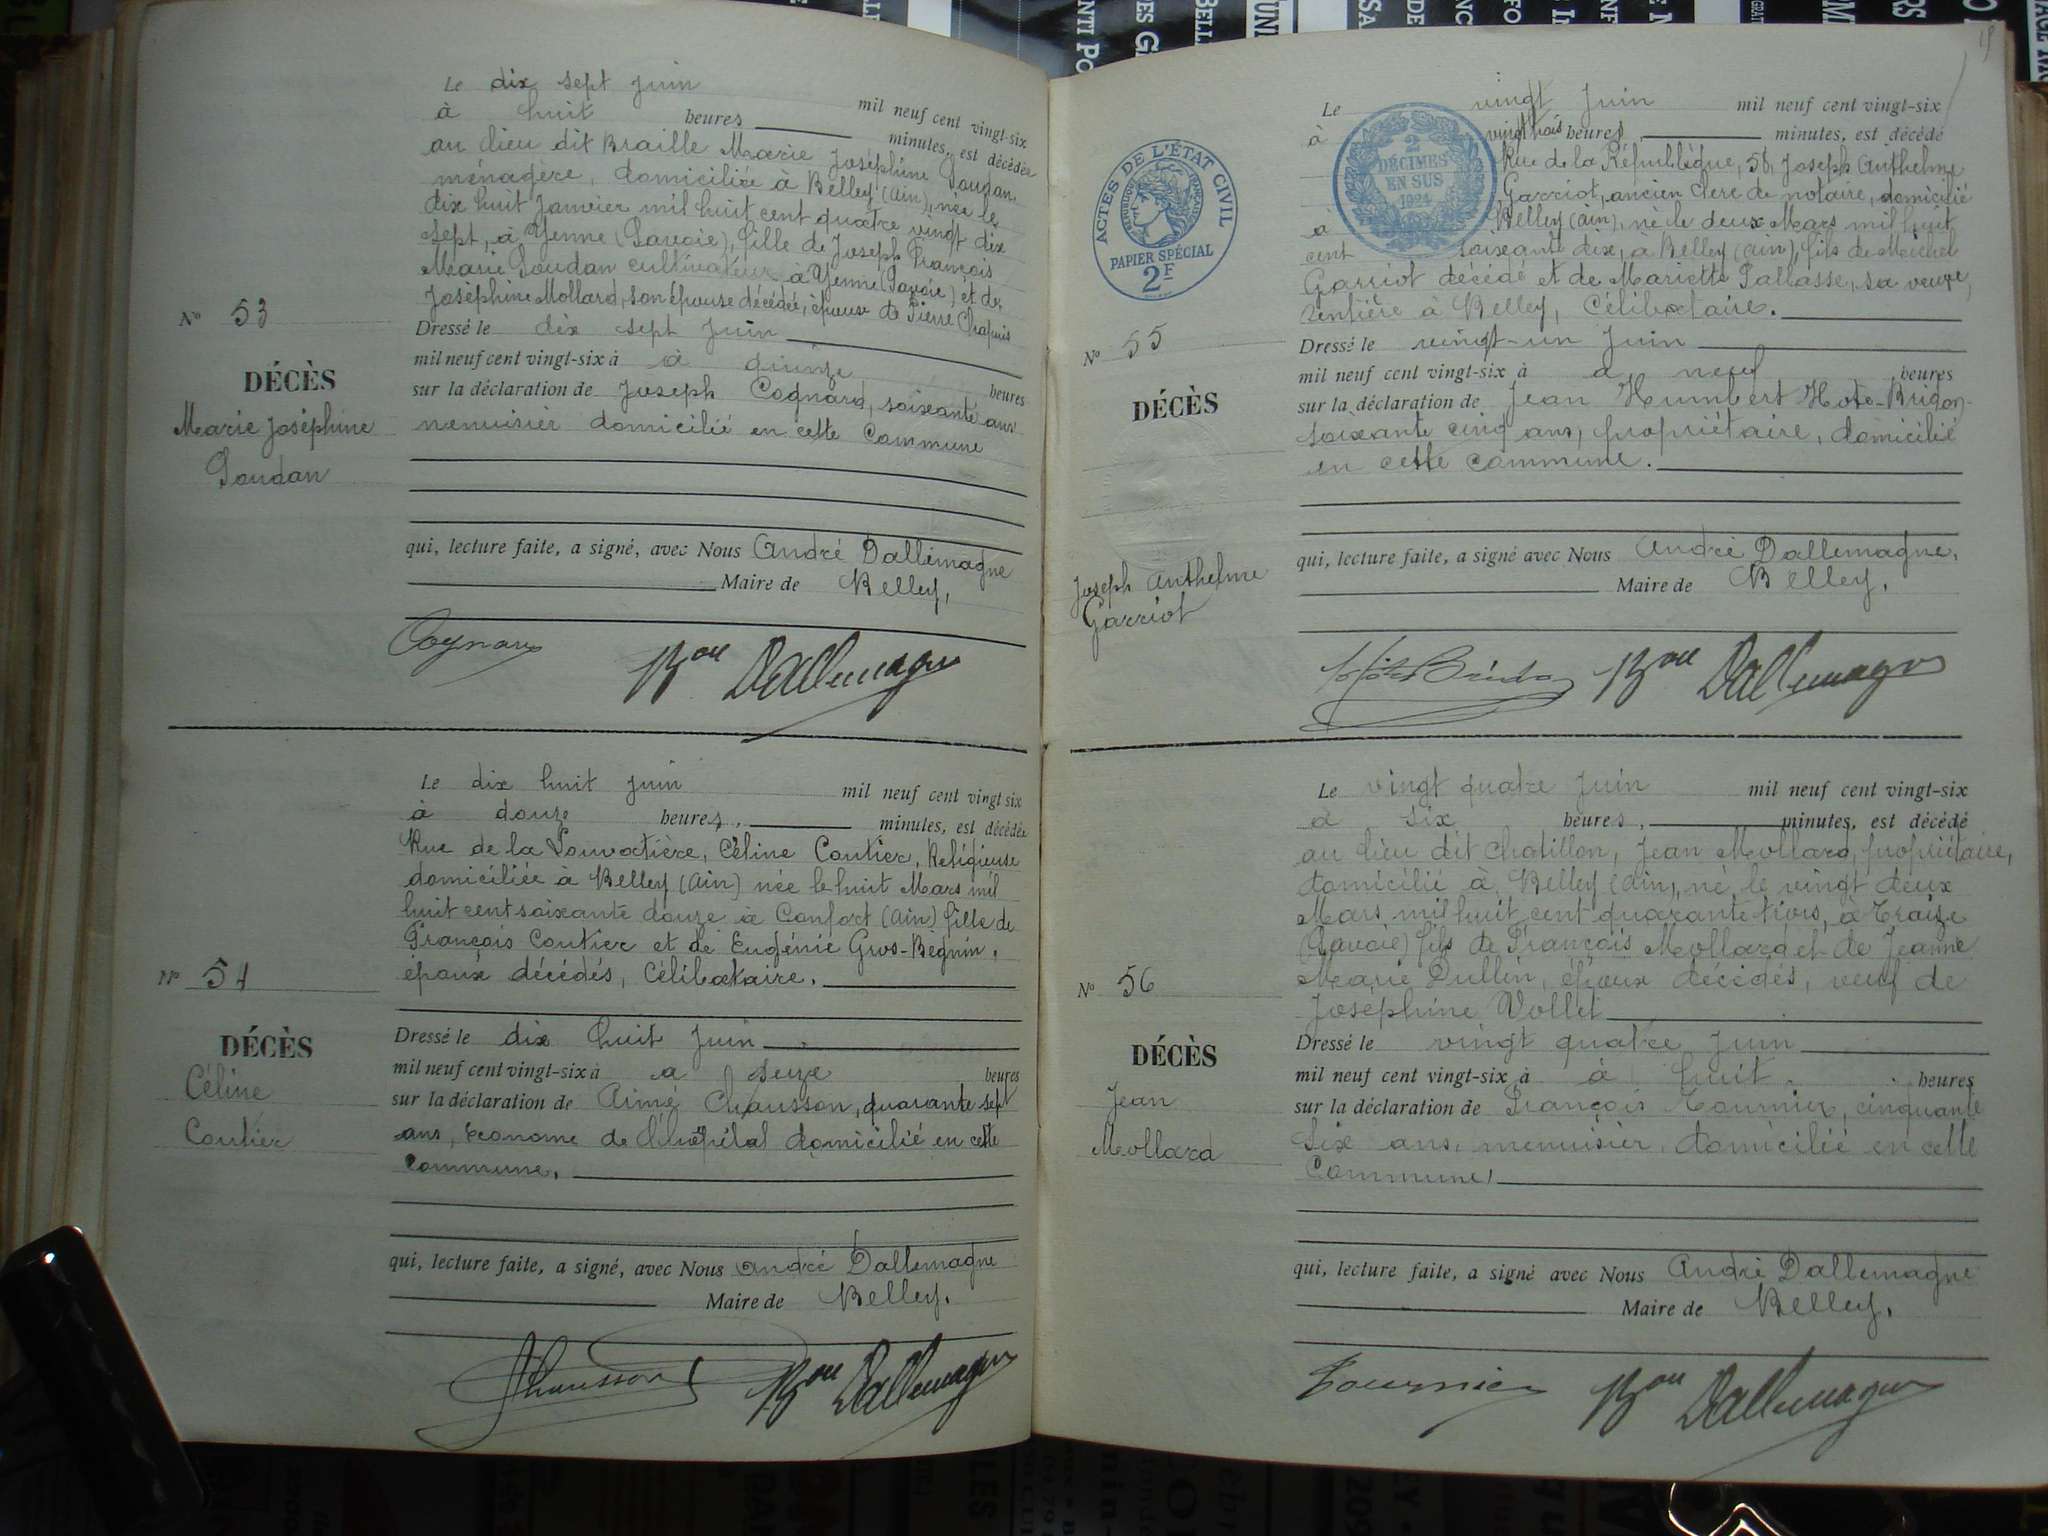 Le dix sept Juin mil neuf cent vingt-six
à huit heures minutes, est décédée
au lieu dit Braille Marie Joséphine Goudan
ménagère, domiciliée à Belley (Ain), née le
dix huit Janvier mil huit cent quatre vingt dix
sept, à Yenne (Savoie), fille de Joseph François
Marie Goudan cultivateur à Yenne (Savoie) et de
Joséphine Mollard, son épouse décédée, épouse de Pierre Chapuis
Nº 53
DÉCÈS
Marie Joséphine
Goudan
Dressé le dix sept Juin
mil neuf cent vingt-six à à quinze heures
sur la déclaration de Joseph Cognard, soixante ans
menuisier domicilié en cette Commune
qui, lecture faite, a signé, avec Nous André Dallemagne
Maire de Belley,
Cognard Bon Dallemagne
Le dix huit Juin mil neuf cent vingt six
à douze heures, minutes, est décédée
Rue de la Louvatière, Céline Coutier, Religieuse
domiciliée à Belley (Ain) née le huit Mars mil
huit cent soixante douze à Confort (Ain) fille de
François Coutier et de Eugénie Gros-Bégnin,
époux décédés, Célibataire.
Nº 54
DÉCÈS
Céline
Coutier
Dressé le dix huit Juin
mil neuf cent vingt-six à à seize heures
sur la déclaration de Aimé Chausson, quarante sept
ans, Econome de l'hôpital domicilié en cette
Commune.
qui, lecture faite, a signé, avec Nous André Dallemagne
Maire de Belley.
Chausson Bon Dallemagne
19
ACTES DE L'ÉTAT CIVIL
RÉPUBLIQUE FRANÇAISE
PAPIER SPÉCIAL
2F
2
DÉCIMES
EN SUS
1924
Le vingt Juin mil neuf cent vingt-six
à vingt trois heures, minutes, est décédé
Rue de la République, 56, Joseph Anthelme
Garriot, ancien Clerc de notaire, domicilié
à Belley (Ain), né le deux Mars mil huit
cent soixante dix, à Belley (Ain), fils de Michel
Garriot décédé et de Mariette Pallasse, sa veuve,
rentière à Belley, Célibataire.
Nº 55
DÉCÈS
Joseph Anthelme
Garriot
Dressé le vingt-un Juin
mil neuf cent vingt-six à à neuf heures
sur la déclaration de Jean Humbert Hote-Bridon
soixante cinq ans, propriétaire, domicilié
en cette commune.
qui, lecture faite, a signé avec Nous André Dallemagne,
Maire de Belley.
Hote Bridon Bon Dallemagne
Le vingt quatre Juin mil neuf cent vingt-six
à six heures, minutes, est décédé
au lieu dit Chatillon, Jean Mollard, propriétaire,
domicilié à Belley (Ain), né le vingt deux
Mars mil huit cent quarante trois, à Traize
(Savoie) fils de François Mollard et de Jeanne
Marie Dullin, époux décédés, veuf de
Joséphine Vollet
Nº 56
DÉCÈS
Jean
Mollard
Dressé le vingt quatre Juin
mil neuf cent vingt-six à à huit heures
sur la déclaration de François Tournier, cinquante
six ans, menuisier, domicilié en cette
Commune,
qui, lecture faite, a signé avec Nous André Dallemagne
Maire de Belley.
Tournier Bon Dallemagne